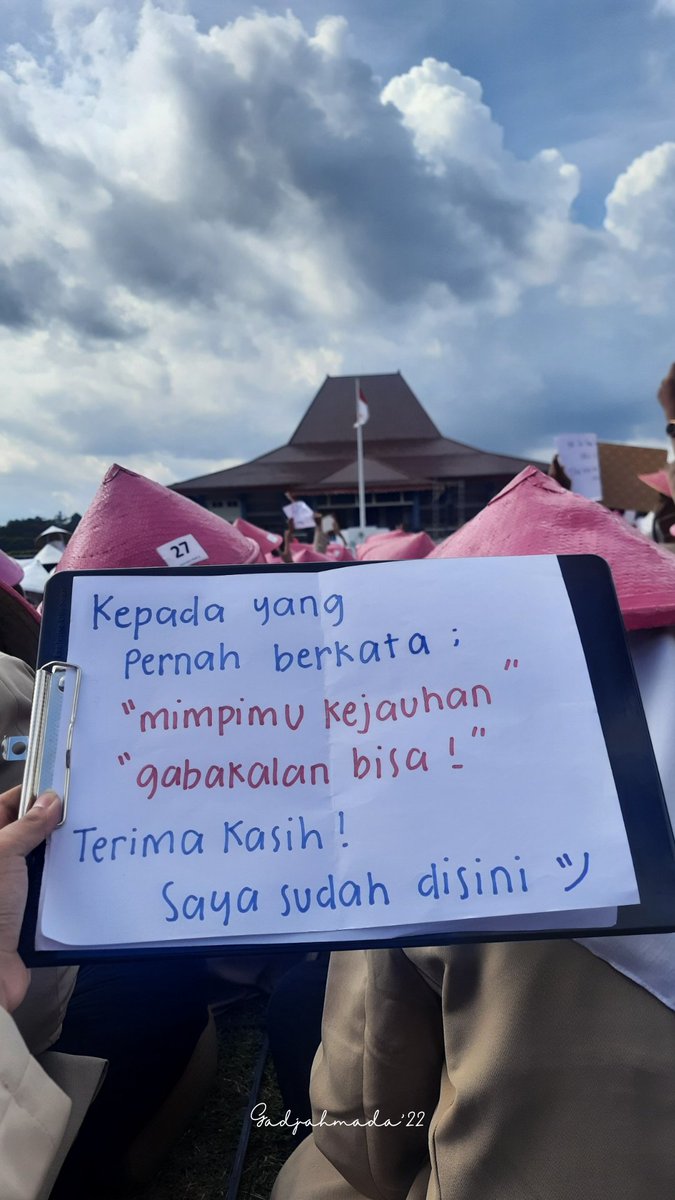 27
Kepada yang
Pernah berkata ;
"mimpimu kejauhan"
"gabakalan bisa!"
Terima Kasih!
Saya sudah disini ツ
Gadjahmada'22